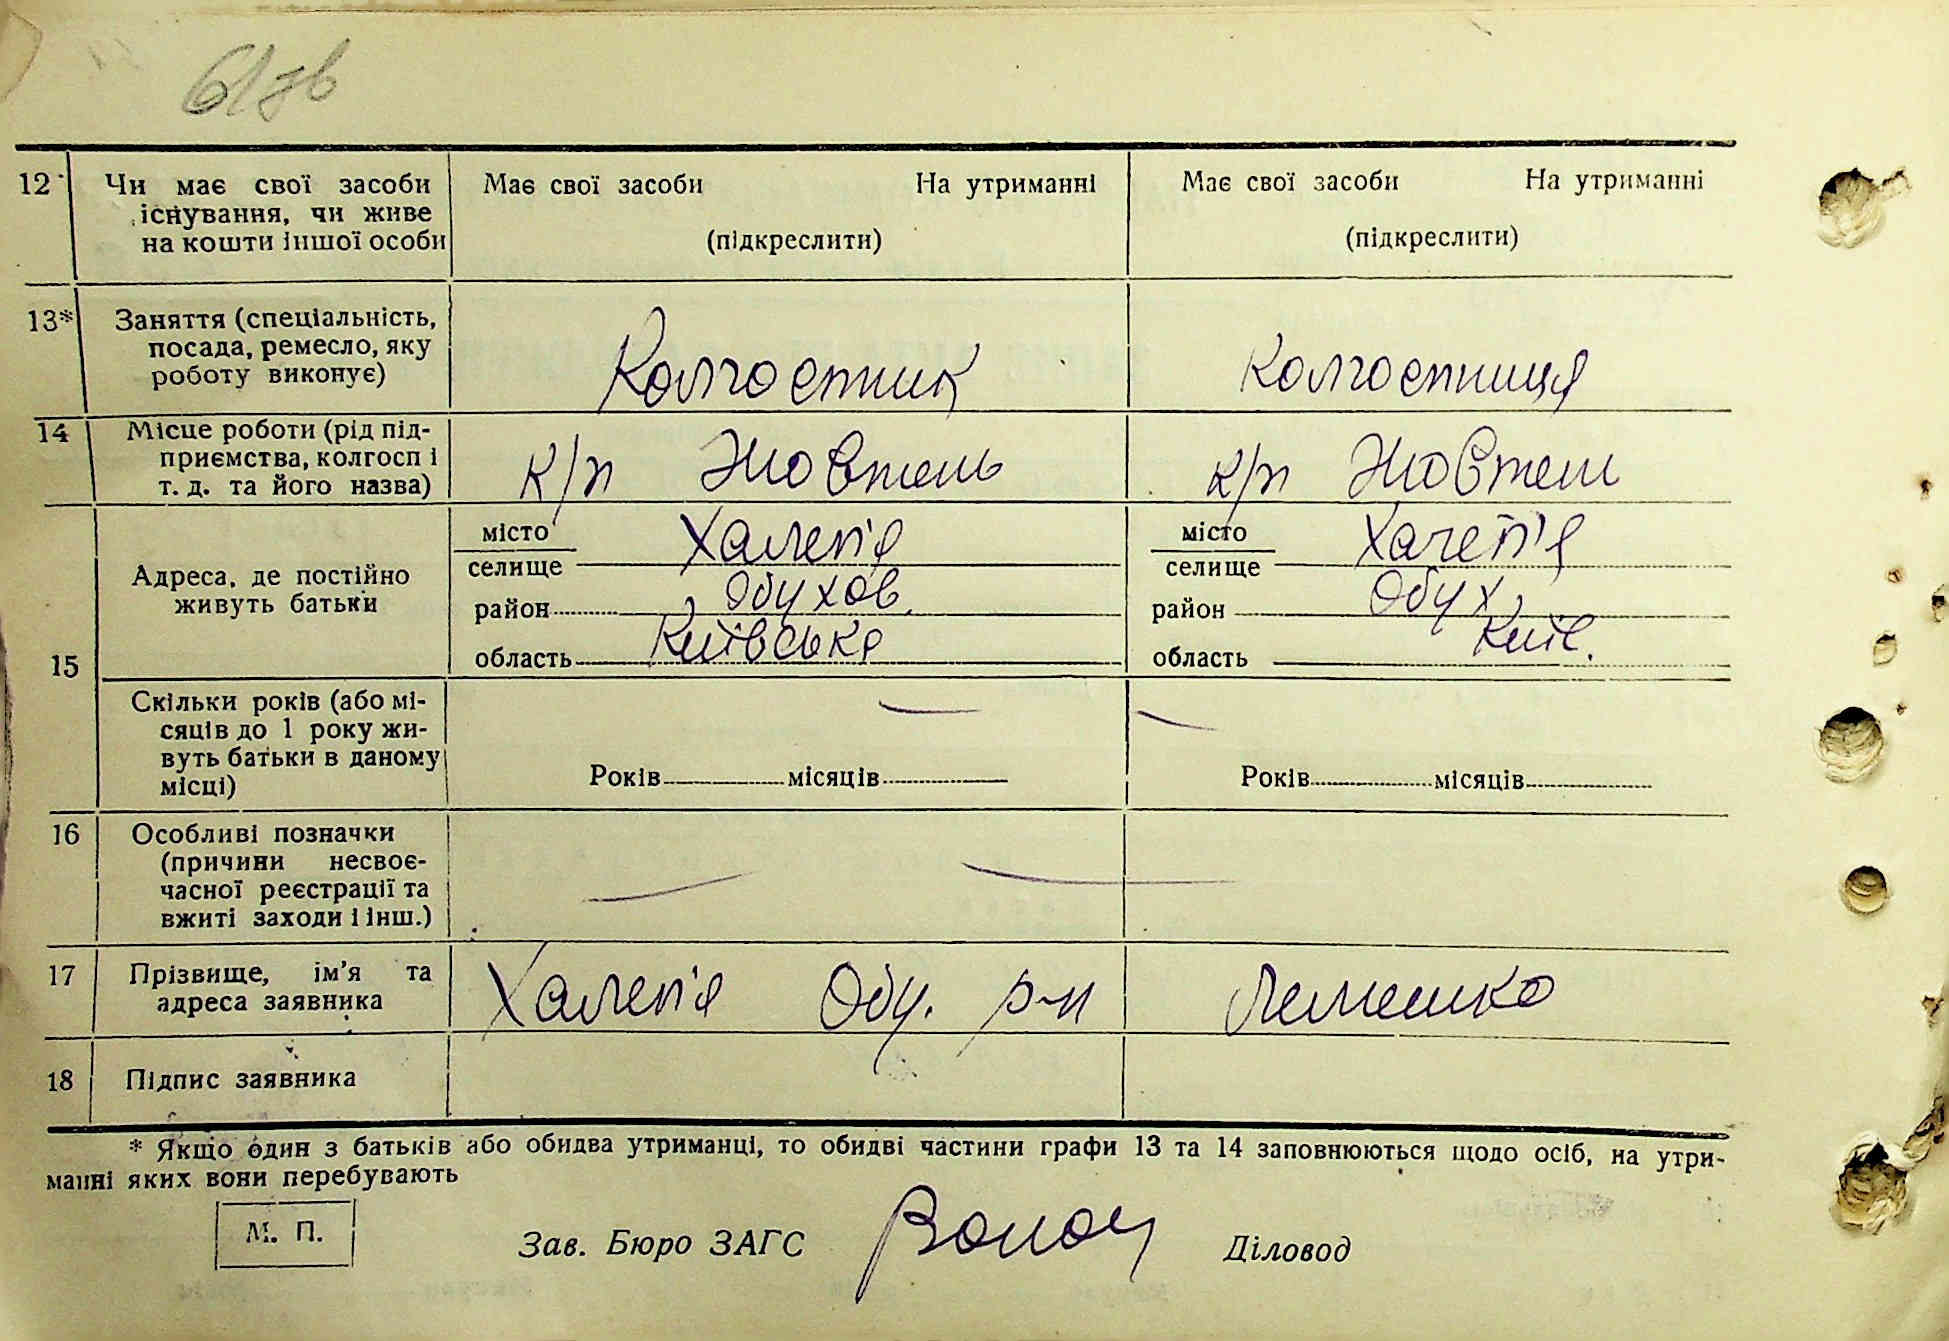 61зв
12 Чи має свої засоби існування, чи живе на кошти іншої особи
Має свої засоби На утриманні
(підкреслити)
Має свої засоби На утриманні
(підкреслити)
13* Заняття (спеціальність, посада, ремесло, яку роботу виконує)
Колгоспник
Колгоспниця
14 Місце роботи (рід підприємства, колгосп і т. д. та його назва)
к/п Жовтень
к/п Жовтень
15 Адреса, де постійно живуть батьки
місто
селище Халеп'я
район Обухов.
область Київська
місто
селище Халеп'я
район Обух.
область Київ.
Скільки років (або місяців до 1 року живуть батьки в даному місці)
Років місяців
Років місяців
16 Особливі позначки (причини несвоєчасної реєстрації та вжиті заходи і інш.)
17 Прізвище, ім'я та адреса заявника
Халеп'я Обу. р-н Лемешко
18 Підпис заявника
* Якщо один з батьків або обидва утриманці, то обидві частини графи 13 та 14 заповнюються щодо осіб, на утри-
манні яких вони перебувають
М. П.
Зав. Бюро ЗАГС Діловод